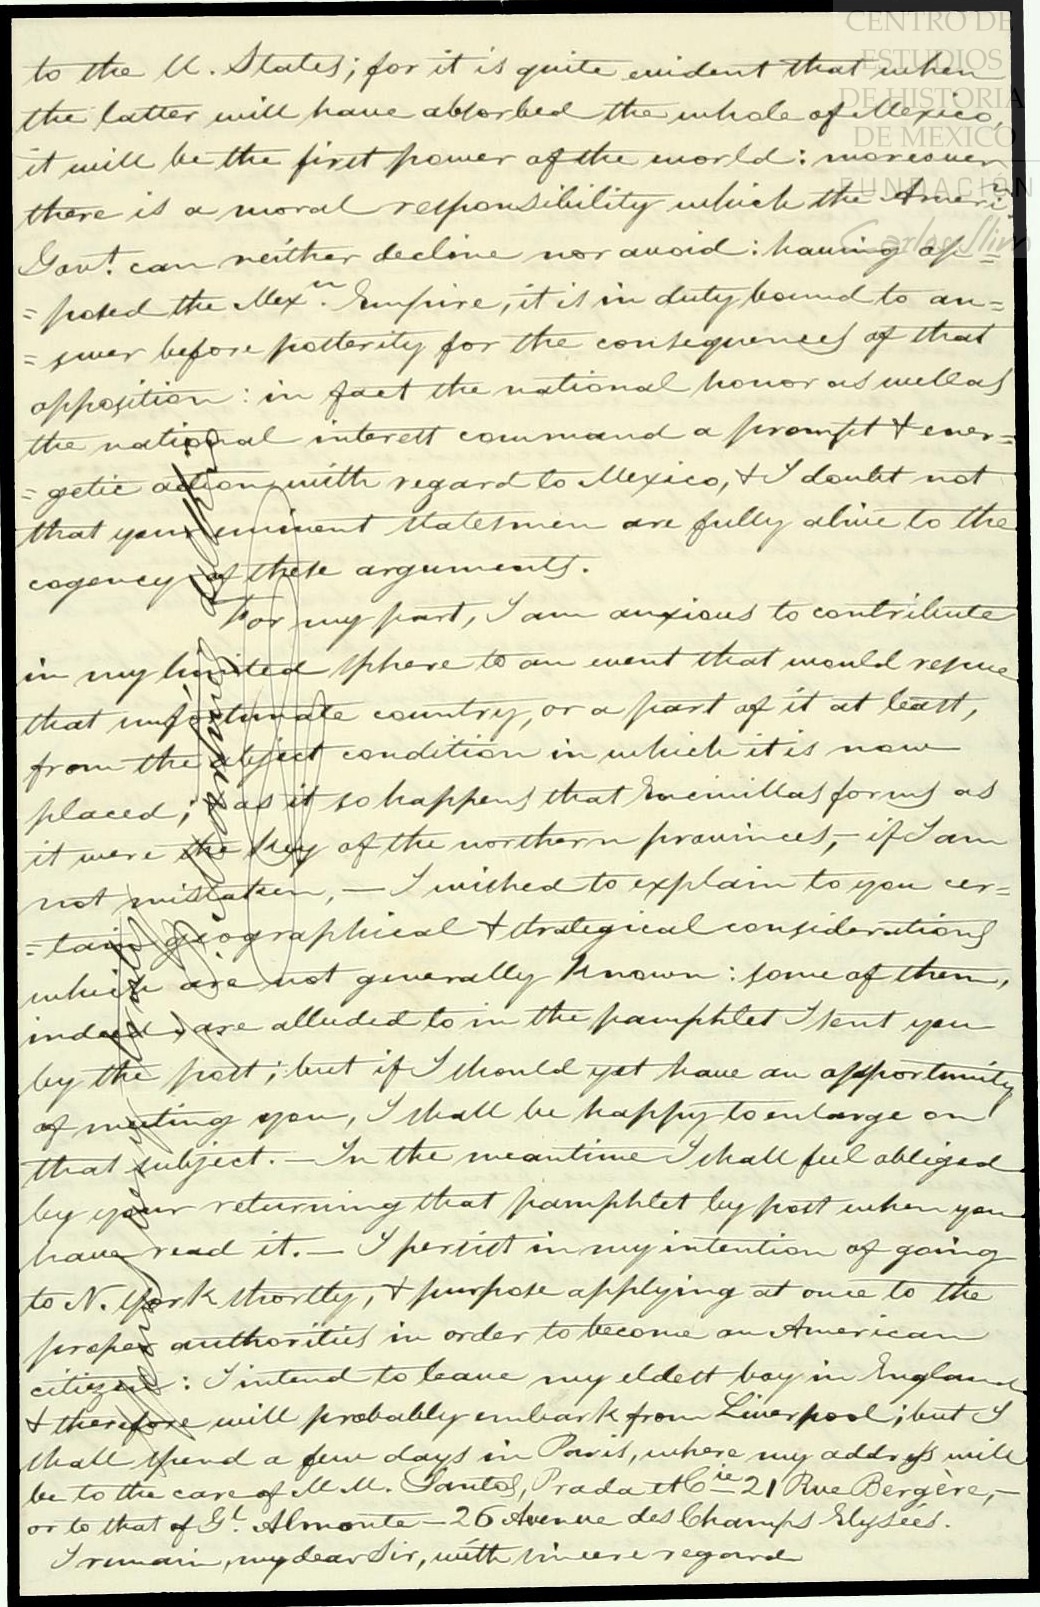 CENTRO DE
ESTUDIOS
DE HISTORIA
DE MEXICO
FUNDACIÓN
Carlos Slim
to the U. States; for it is quite evident that when
the latter will have absorbed the whole of Mexico,
it will be the first power of the world: moreover
there is a moral responsibility which the Amerin
Govt. can neither decline nor avoid: having op=
=posed the Mexn. Empire, it is in duty bound to an=
=swer before posterity for the consequences of that
opposition: in fact the national honor as well as
the national interest command a prompt & ener=
=getic action with regard to Mexico, & I doubt not
that your eminent statesmen are fully alive to the
cogency of these arguments.
For my part, I am anxious to contribute
in my limited sphere to an event that would rescue
that unfortunate country, or a part of it at least,
from the abject condition in which it is now
placed; & as it so happens that Encinillas forms as
it were the key of the northern provinces, – if I am
not mistaken, – I wished to explain to you cer=
=tain geographical & strategical considerations
which are not generally known: some of them,
indeed, are alluded to in the pamphlet I sent you
by the post; but if I should yet have an opportunity
of meeting you, I shall be happy to enlarge on
that subject. – In the meantime I shall feel obliged
by your returning that pamphlet by post when you
have read it. – I persist in my intention of going
to N. York shortly, & purpose applying at once to the
proper authorities in order to become an American
citizen: I intend to leave my eldest boy in England
& therefore will probably embark from Liverpool; but I
shall spend a few days in Paris, where my address will
be to the care of M.M. Santos, Prada et Cie – 21 Rue Bergère, –
or to that of Gl. Almonte – 26 Avenue des Champs Elysées.
I remain, my dear Sir, with sincere regard